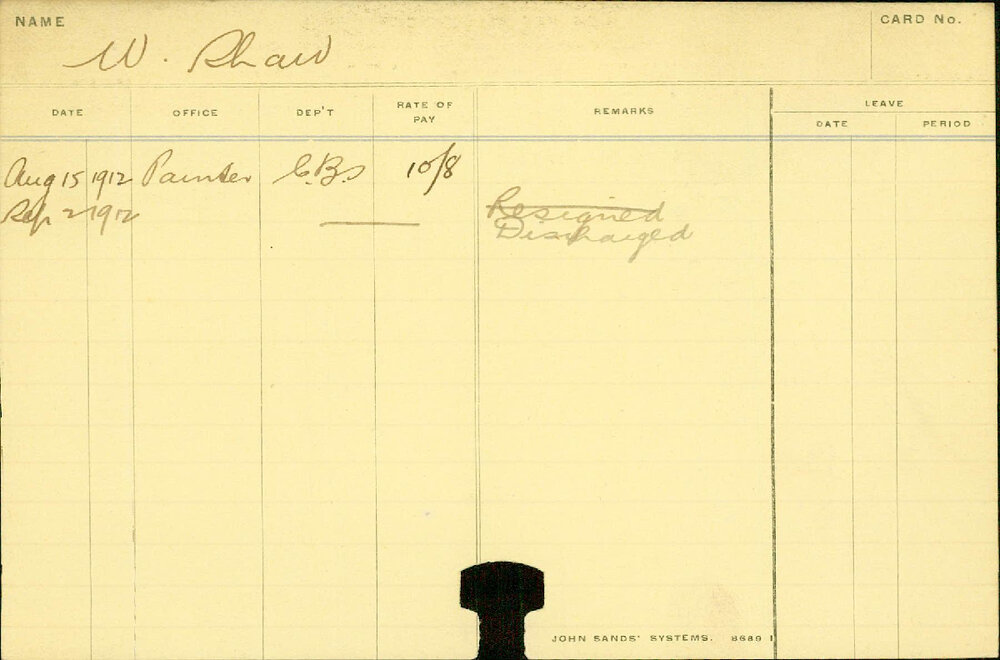 NAME
CARD No.
W. Shaw
DATE OFFICE DEP'T RATE OF PAY REMARKS LEAVE
DATE PERIOD
Aug 15 1912 Painter C.B.s 10/8
Sep 2 1912 Resigned
Discharged
JOHN SANDS' SYSTEMS. 8689